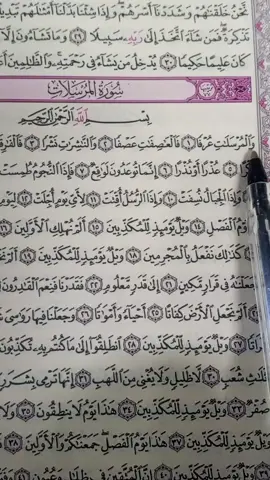 نَّحْنُ خَلَقْنَٰهُمْ وَشَدَدْنَآ أَسْرَهُمْ ۖ وَإِذَا شِئْنَا بَدَّلْنَآ أَمْثَٰلَهُمْ تَبْدِيلًا
تَذْكِرَةٌ ۖ فَمَن شَآءَ ٱتَّخَذَ إِلَىٰ رَبِّهِۦ سَبِيلًا ٢٩ وَمَا تَشَآءُونَ إِلَّآ
كَانَ عَلِيمًا حَكِيمًا ٣٠ يُدْخِلُ مَن يَشَآءُ فِى رَحْمَتِهِۦ ۚ وَٱلظَّٰلِمِينَ
سُورَةُ المُرْسَلَات
بِسْمِ ٱللَّهِ ٱلرَّحْمَٰنِ
وَٱلْمُرْسَلَٰتِ عُرْفًا ١ فَٱلْعَٰصِفَٰتِ عَصْفًا ٢ وَٱلنَّٰشِرَٰتِ نَشْرًا ٣
عُذْرًا أَوْ نُذْرًا ٦ إِنَّمَا تُوعَدُونَ لَوَٰقِعٌ ٧ فَإِذَا ٱلنُّجُومُ طُمِسَتْ
وَإِذَا ٱلْجِبَالُ نُسِفَتْ ١٠ وَإِذَا ٱلرُّسُلُ أُقِّتَتْ ١١ لِأَىِّ يَوْمٍ أُجِّلَتْ ١٢ لِيَوْمِ
يَوْمُ ٱلْفَصْلِ ١٤ وَيْلٌ يَوْمَئِذٍ لِّلْمُكَذِّبِينَ ١٥ أَلَمْ نُهْلِكِ ٱلْأَوَّلِينَ ١٦
كَذَٰلِكَ نَفْعَلُ بِٱلْمُجْرِمِينَ ١٨ وَيْلٌ يَوْمَئِذٍ لِّلْمُكَذِّبِينَ ١٩
فَجَعَلْنَٰهُ فِى قَرَارٍ مَّكِينٍ ٢١ إِلَىٰ قَدَرٍ مَّعْلُومٍ ٢٢ فَقَدَرْنَا فَنِعْمَ ٱلْقَٰدِرُونَ
أَلَمْ نَجْعَلِ ٱلْأَرْضَ كِفَاتًا ٢٥ أَحْيَآءً وَأَمْوَٰتًا ٢٦ وَجَعَلْنَا فِيهَا رَوَٰسِىَ
وَيْلٌ يَوْمَئِذٍ لِّلْمُكَذِّبِينَ ٢٨ ٱنطَلِقُوٓا۟ إِلَىٰ مَا كُنتُم بِهِۦ تُكَذِّبُونَ
ثَلَٰثِ شُعَبٍ ٣٠ لَّا ظَلِيلٍ وَلَا يُغْنِى مِنَ ٱللَّهَبِ ٣١ إِنَّهَا تَرْمِى بِشَرَرٍ
صُفْرٌ ٣٣ وَيْلٌ يَوْمَئِذٍ لِّلْمُكَذِّبِينَ ٣٤ هَٰذَا يَوْمُ لَا يَنطِقُونَ ٣٥ وَلَا
وَيْلٌ يَوْمَئِذٍ لِّلْمُكَذِّبِينَ ٣٧ هَٰذَا يَوْمُ ٱلْفَصْلِ ۖ جَمَعْنَٰكُمْ وَٱلْأَوَّلِينَ ٣٨
وَيْلٌ يَوْمَئِذٍ لِّلْمُكَذِّبِينَ ٤٠ إِنَّ ٱلْمُتَّقِينَ فِى ظِلَٰلٍ وَعُيُونٍ ٤١